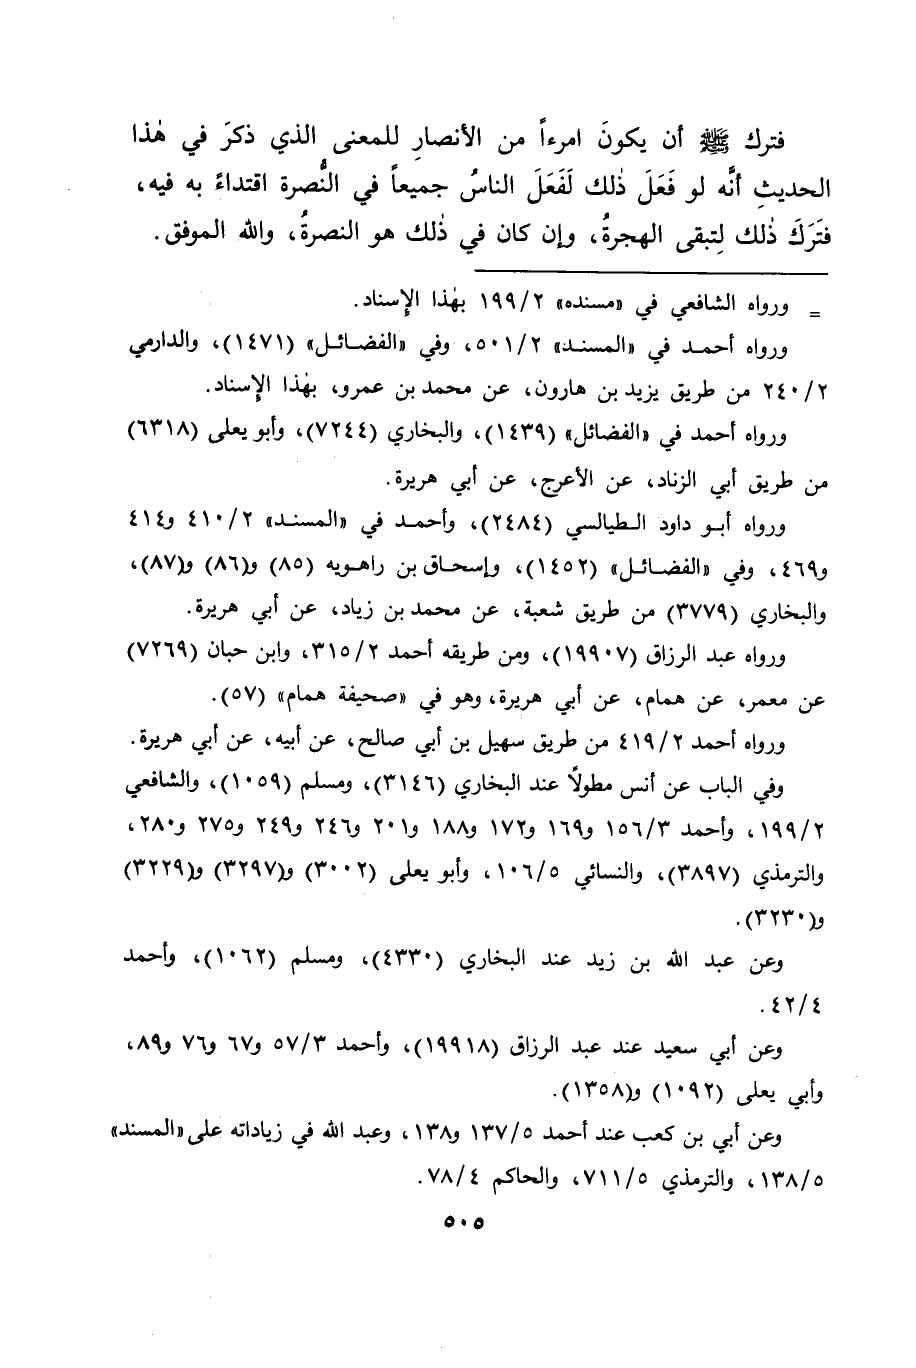 فترك ﷺ أن يكونَ امرءاً من الأنصارِ للمعنى الذي ذكرَ في هٰذا
الحديثِ أنَّه لو فَعَلَ ذٰلك لَفَعَلَ الناسُ جميعاً في النُّصرة اقتداءً به فيه،
فتَرَكَ ذٰلك لِتبقى الهجرةُ، وإن كان في ذٰلك هو النصرةُ، والله الموفق.
= ورواه الشافعي في «مسنده» ١٩٩/٢ بهٰذا الإسناد.
ورواه أحمد في «المسند» ٥٠١/٢، وفي «الفضائل» (١٤٧١)، والدارمي
٢٤٠/٢ من طريق يزيد بن هارون، عن محمد بن عمرو، بهٰذا الإسناد.
ورواه أحمد في «الفضائل» (١٤٣٩)، والبخاري (٧٢٤٤)، وأبو يعلى (٦٣١٨)
من طريق أبي الزناد، عن الأعرج، عن أبي هريرة.
ورواه أبو داود الطيالسي (٢٤٨٤)، وأحمد في «المسند» ٤١٠/٢ و٤١٤
و٤٦٩، وفي «الفضائل» (١٤٥٢)، وإسحاق بن راهويه (٨٥) و(٨٦) و(٨٧)،
والبخاري (٣٧٧٩) من طريق شعبة، عن محمد بن زياد، عن أبي هريرة.
ورواه عبد الرزاق (١٩٩٠٧)، ومن طريقه أحمد ٣١٥/٢، وابن حبان (٧٢٦٩)
عن معمر، عن همام، عن أبي هريرة، وهو في «صحيفة همام» (٥٧).
ورواه أحمد ٤١٩/٢ من طريق سهيل بن أبي صالح، عن أبيه، عن أبي هريرة.
وفي الباب عن أنس مطولًا عند البخاري (٣١٤٦)، ومسلم (١٠٥٩)، والشافعي
١٩٩/٢، وأحمد ١٥٦/٣ و١٦٩ و١٧٢ و١٨٨ و٢٠١ و٢٤٦ و٢٤٩ و٢٧٥ و٢٨٠،
والترمذي (٣٨٩٧)، والنسائي ١٠٦/٥، وأبو يعلى (٣٠٠٢) و(٣٢٩٧) و(٣٢٢٩)
و(٣٢٣٠).
وعن عبد الله بن زيد عند البخاري (٤٣٣٠)، ومسلم (١٠٦٢)، وأحمد
٤٢/٤.
وعن أبي سعيد عند عبد الرزاق (١٩٩١٨)، وأحمد ٥٧/٣ و٦٧ و٧٦ و٨٩،
وأبي يعلى (١٠٩٢) و(١٣٥٨).
وعن أبي بن كعب عند أحمد ١٣٧/٥ و١٣٨، وعبد الله في زياداته على «المسند»
١٣٨/٥، والترمذي ٧١١/٥، والحاكم ٧٨/٤.
٥٠٥